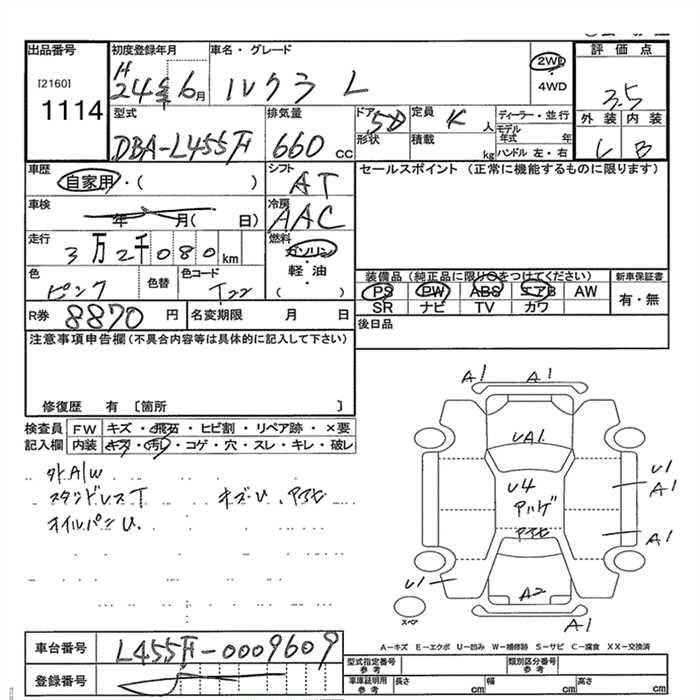 出品番号
[2160]
1114
初度登録年月
H
24年6月
車名・グレード
ルクラ L
2WD
・
4WD
評価点
3.5
型式
DBA-L455F
排気量
660 cc
ドア 5D
形状
定員 人
積載 kg
ディーラー・並行
モデル
年式 年
ハンドル 左・右
外装 内装
C B
車歴
自家用・( )
シフト
AT
セールスポイント (正常に機能するものに限ります)
車検
年 月( 日)
冷房
AAC
走行
3万2千080km
燃料
ガソリン
・
軽・油
( )
色
ピンク
色替
色コード
T22
装備品(純正品に限り○をつけてください)
PS PW ABS エアB AW
SR ナビ TV カワ
新車保証書
有・無
R券 8870 円
名変期限 月 日
後日品
注意事項申告欄(不具合内容等は具体的に記入して下さい)
修復歴 有 〔箇所 〕
検査員
記入欄
FW キズ・飛石・ヒビ割・リペア跡・×要
内装 キズ・汚れ・コゲ・穴・スレ・キレ・破レ
外A/W
スタンドレスT キズU、アスヒ
オイルパンU.
A1
A1
UA1
U4
アルゲ
アスヒ
U1
A1
A1
U1
A2
A1
スペア
A-キズ E-エクボ U-凹み W-補修跡 S-サビ C-腐食 XX-交換済
車台番号
L455F-0009609
登録番号
型式指定番号
参考
類別区分番号
参考
車庫証明用
参考
長さ cm
幅 cm
高さ cm